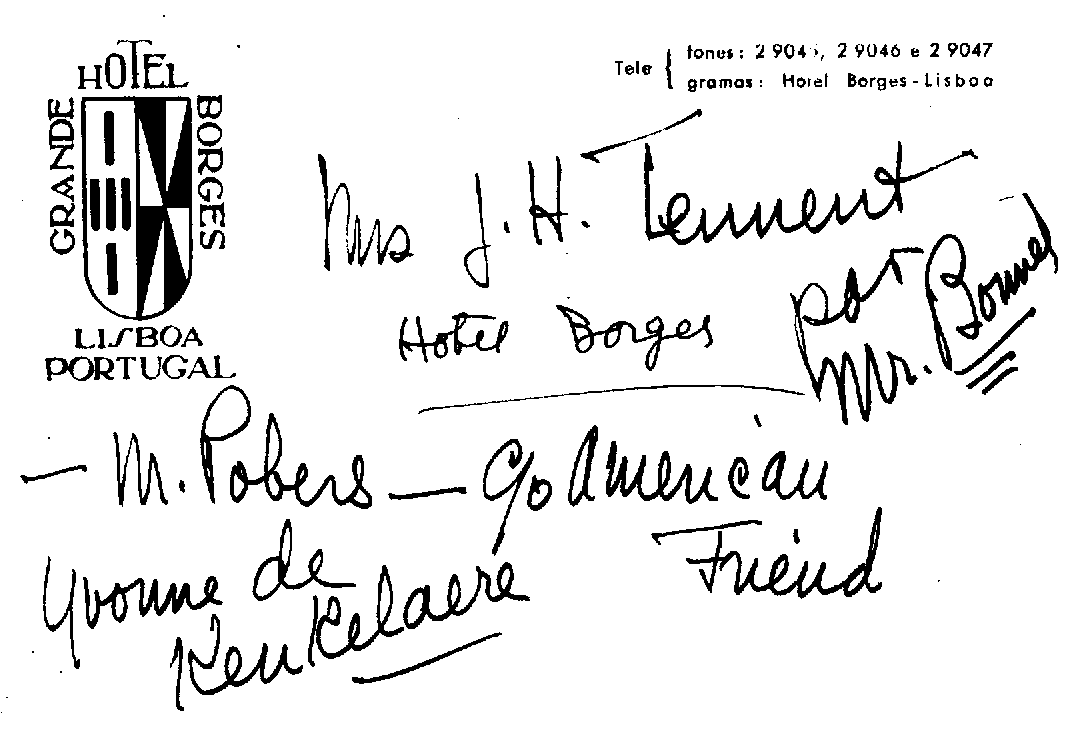 GRANDE HOTEL BORGES
LISBOA
PORTUGAL
Tele { fones: 2 9045, 2 9046 e 2 9047
gramas: Hotel Borges-Lisboa
Mrs J. H. Tennent
Hotel Borges
par
Mr. Bonnel
— M. Pobers — c/o American
Friend
Yvonne de
Kenkelaere